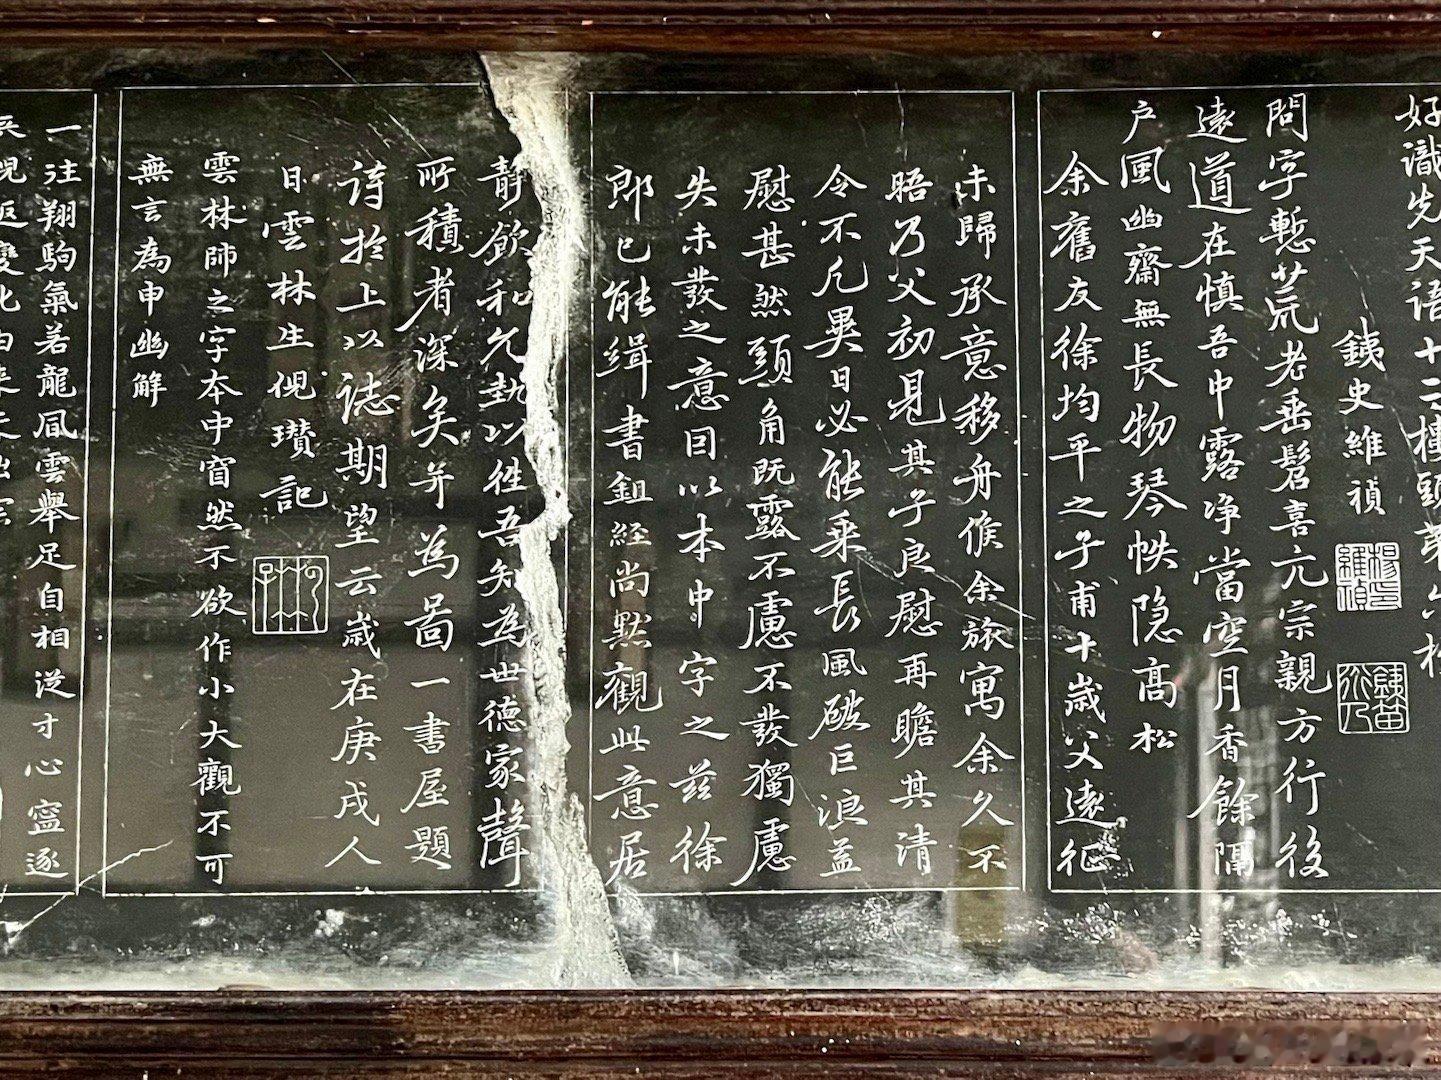 好識先天語十二樓頭第六
鐵史維禎
楊維禎
鐵笛
問字慙荒老垂髫喜亢宗親方行後
遠道在慎吾中露净當空月香餘隔
户風幽齋無長物琴帙隐高松
余舊友徐均平之子甫十歲父遠征
未歸承意移舟候余旅寓余久不
晤乃父初見其子良慰再瞻其清
令不凡異日必能乘長風破巨浪益
慰甚然頭角既露不慮不發獨慮
失未發之意因以本中字之兹徐
郎已能緝書鉏經尚黙觀此意居
静飲和允執以往吾知為世德家聲
所積者深矣并為啚一書屋題
诗於上以誌期望云歲在庚戌人
日雲林生倪瓚記
雲林師之字本中窅然不欲作小大觀不可
無言為申幽解
一注翔駒氣若龍凬雲舉足自相従寸心寍逐